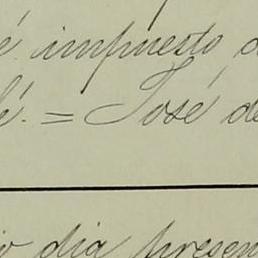 é impuesto d
fé. = José de
dia presen